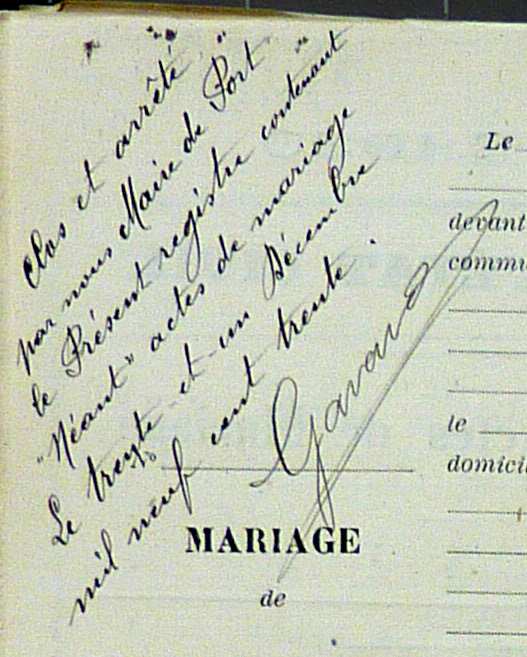 Clos et arrêté
par nous Maire de Port
le Présent registre contenant
"Néant" actes de mariage
Le trente et un Décembre
mil neuf cent trente.
Gavard
MARIAGE
de
Le
devant
commu
le
domicil